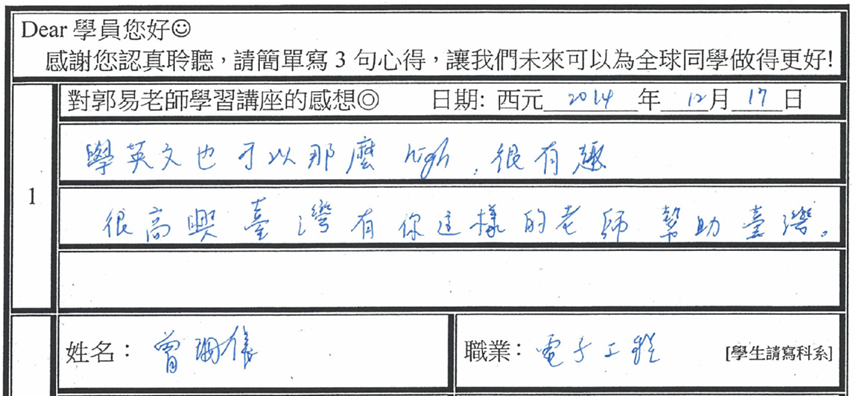 Dear 學員您好☺
感謝您認真聆聽，請簡單寫 3 句心得，讓我們未來可以為全球同學做得更好!
1
對郭易老師學習講座的感想◎ 日期: 西元 2014 年 12 月 17 日
學英文也可以那麼 high，很有趣
很高興臺灣有你這樣的老師幫助臺灣。
姓名： 曾
職業： 電子工程 [學生請寫科系]